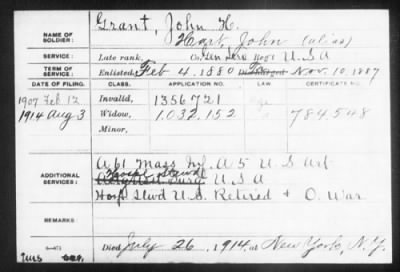 NAME OF SOLDIER: Grant, John H.
Hart, John (alias)
SERVICE: Late rank, Co. Gen Serv Reg't U.S.A
TERM OF SERVICE: Enlisted Feb 4, 1880 To Discharged Nov. 10, 1887
DATE OF FILING. CLASS. APPLICATION NO. LAW. CERTIFICATE NO.
1907 Feb 12 Invalid, 1356721
1914 Aug 3 Widow, 1.032.152 784548
Minor,
ADDITIONAL SERVICES: A 61 Mass Inf. A 5 U.S Art
Hosp Stwd U.S.A
Hosp Stwd U.S. Retired + O. War
REMARKS
Died July 26, 1914, at New York, N.Y.